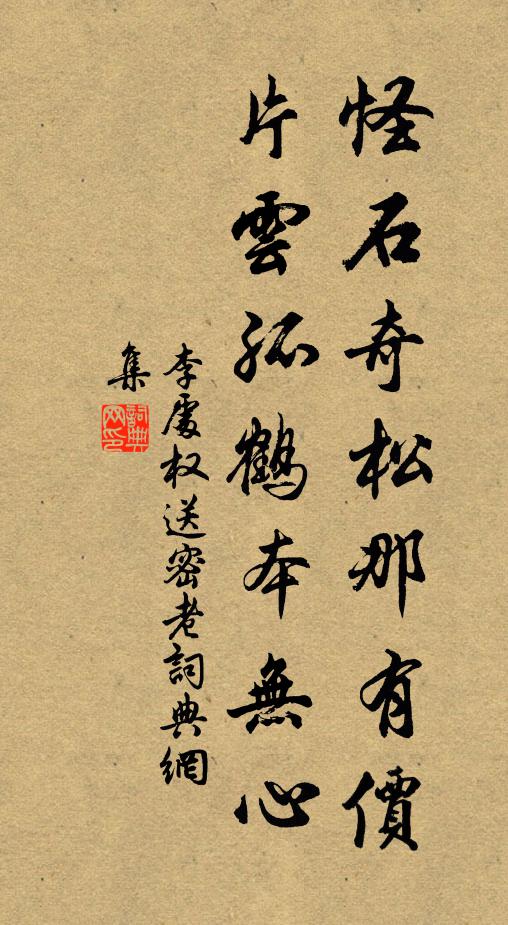 怪石奇松那有價
片雲孤鶴本無心
李處权送密老詞典網
集
詞典网印